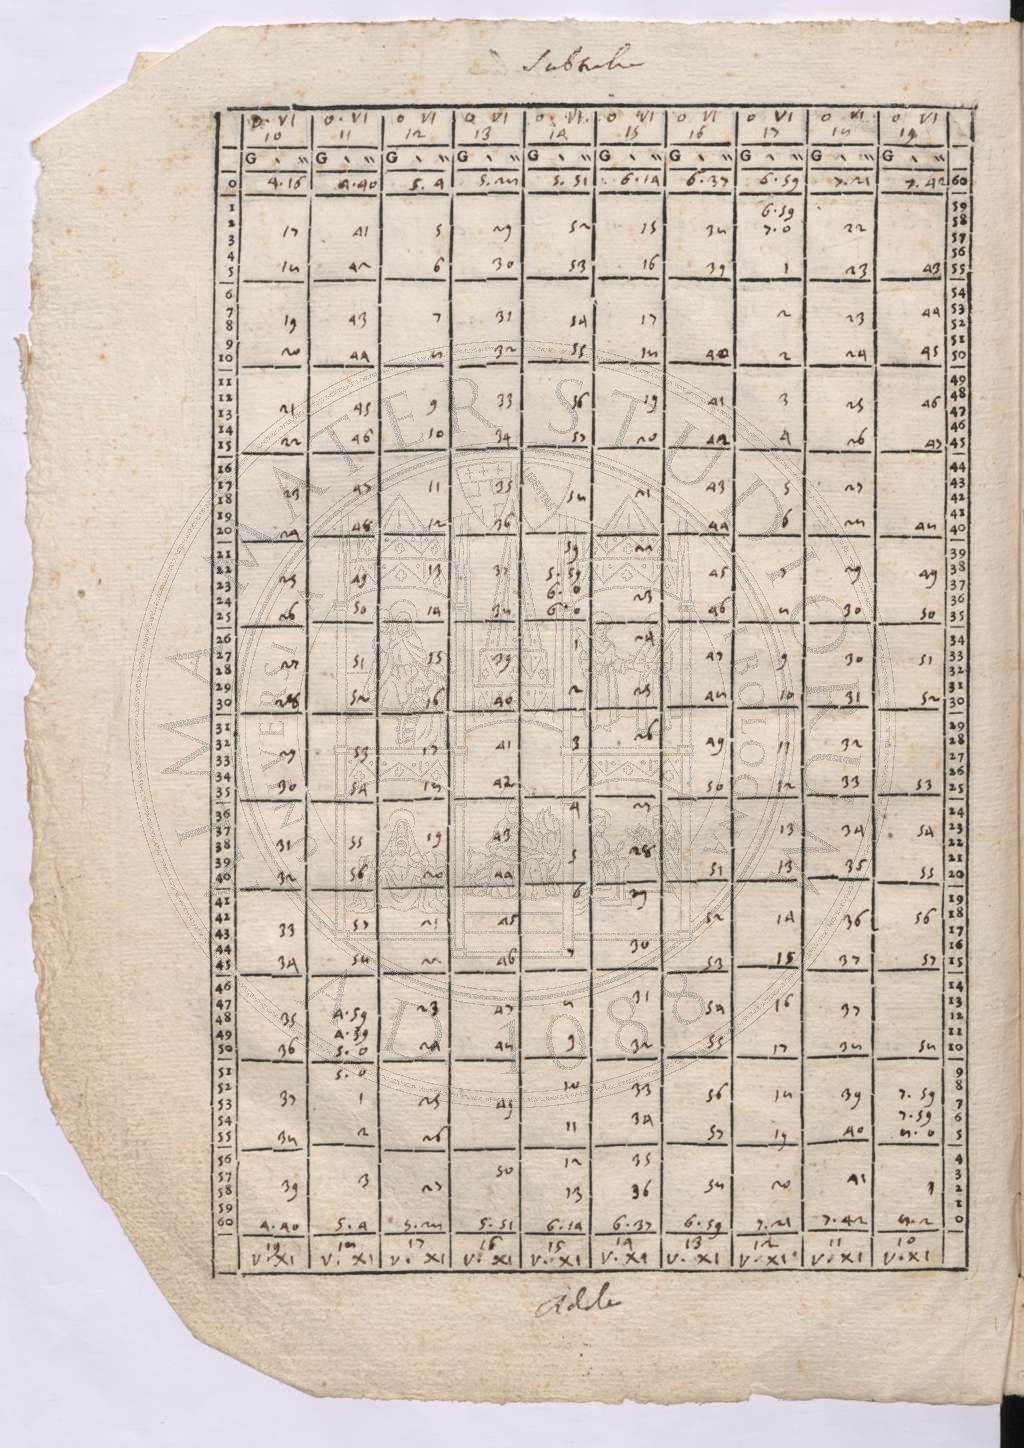 Subtrahe
0 · VI 0 · VI 0 VI 0 VI 0 · VI 0 VI 0 VI 0 VI 0 VI 0 VI
10 11 12 13 14 15 16 17 18 19
G ‵ ‶ G ‵ ‶ G ‵ ‶ G ‵ ‶ G ‵ ‶ G ‵ ‶ G ‵ ‶ G ‵ ‶ G ‵ ‶ G ‵ ‶
0 4·16 4·40 5·4 5·28 5·51 6·14 6·37 6·59 7·21 7·42 60
1 6·59 59
2 17 41 5 29 52 15 38 7·0 22 58
3 57
4 56
5 18 42 6 30 53 16 39 1 23 43 55
6 54
7 19 43 7 31 54 17 2 23 44 53
8 52
9 51
10 20 44 8 32 55 18 40 2 24 45 50
11 49
12 21 45 9 33 56 19 41 3 25 46 48
13 47
14 46
15 22 46 10 34 57 20 42 4 26 47 45
16 44
17 23 47 11 35 58 21 43 5 27 43
18 42
19 41
20 24 48 12 36 44 6 28 48 40
21 59 22 39
22 25 49 13 37 5·59 45 7 29 49 38
23 6·0 23 37
24 36
25 26 50 14 38 6·0 46 8 30 50 35
26 1 24 34
27 27 51 15 39 47 9 30 51 33
28 32
29 2 25 31
30 28 52 16 40 48 10 31 52 30
31 29
32 29 53 17 41 3 26 49 11 32 28
33 27
34 26
35 30 54 18 42 50 12 33 53 25
36 4 27 24
37 31 55 19 43 13 34 54 23
38 22
39 5 28 21
40 32 56 20 44 51 13 35 55 20
41 6 29 19
42 33 57 21 45 52 14 36 56 18
43 17
44 7 30 16
45 34 58 22 46 53 15 37 57 15
46 14
47 35 4·59 23 47 8 31 54 16 37 13
48 12
49 4·59 11
50 36 5·0 24 48 9 32 55 17 38 58 10
51 5·0 9
52 10 33 8
53 37 1 25 49 56 18 39 7·59 7
54 11 34 7·59 6
55 38 2 26 57 19 40 8·0 5
56 12 35 4
57 39 3 27 50 58 20 41 1 3
58 13 36 2
59 1
60 4·40 5·4 5·28 5·51 6·14 6·37 6·59 7·21 7·42 8·2 0
19 18 17 16 15 14 13 12 11 10
V·XI V·XI V·XI V·XI V·XI V·XI V·XI V·XI V·XI V·XI
Adde
ALMA MATER STUDIORUM
UNIVERSITÀ DI BOLOGNA
A.D. 1088